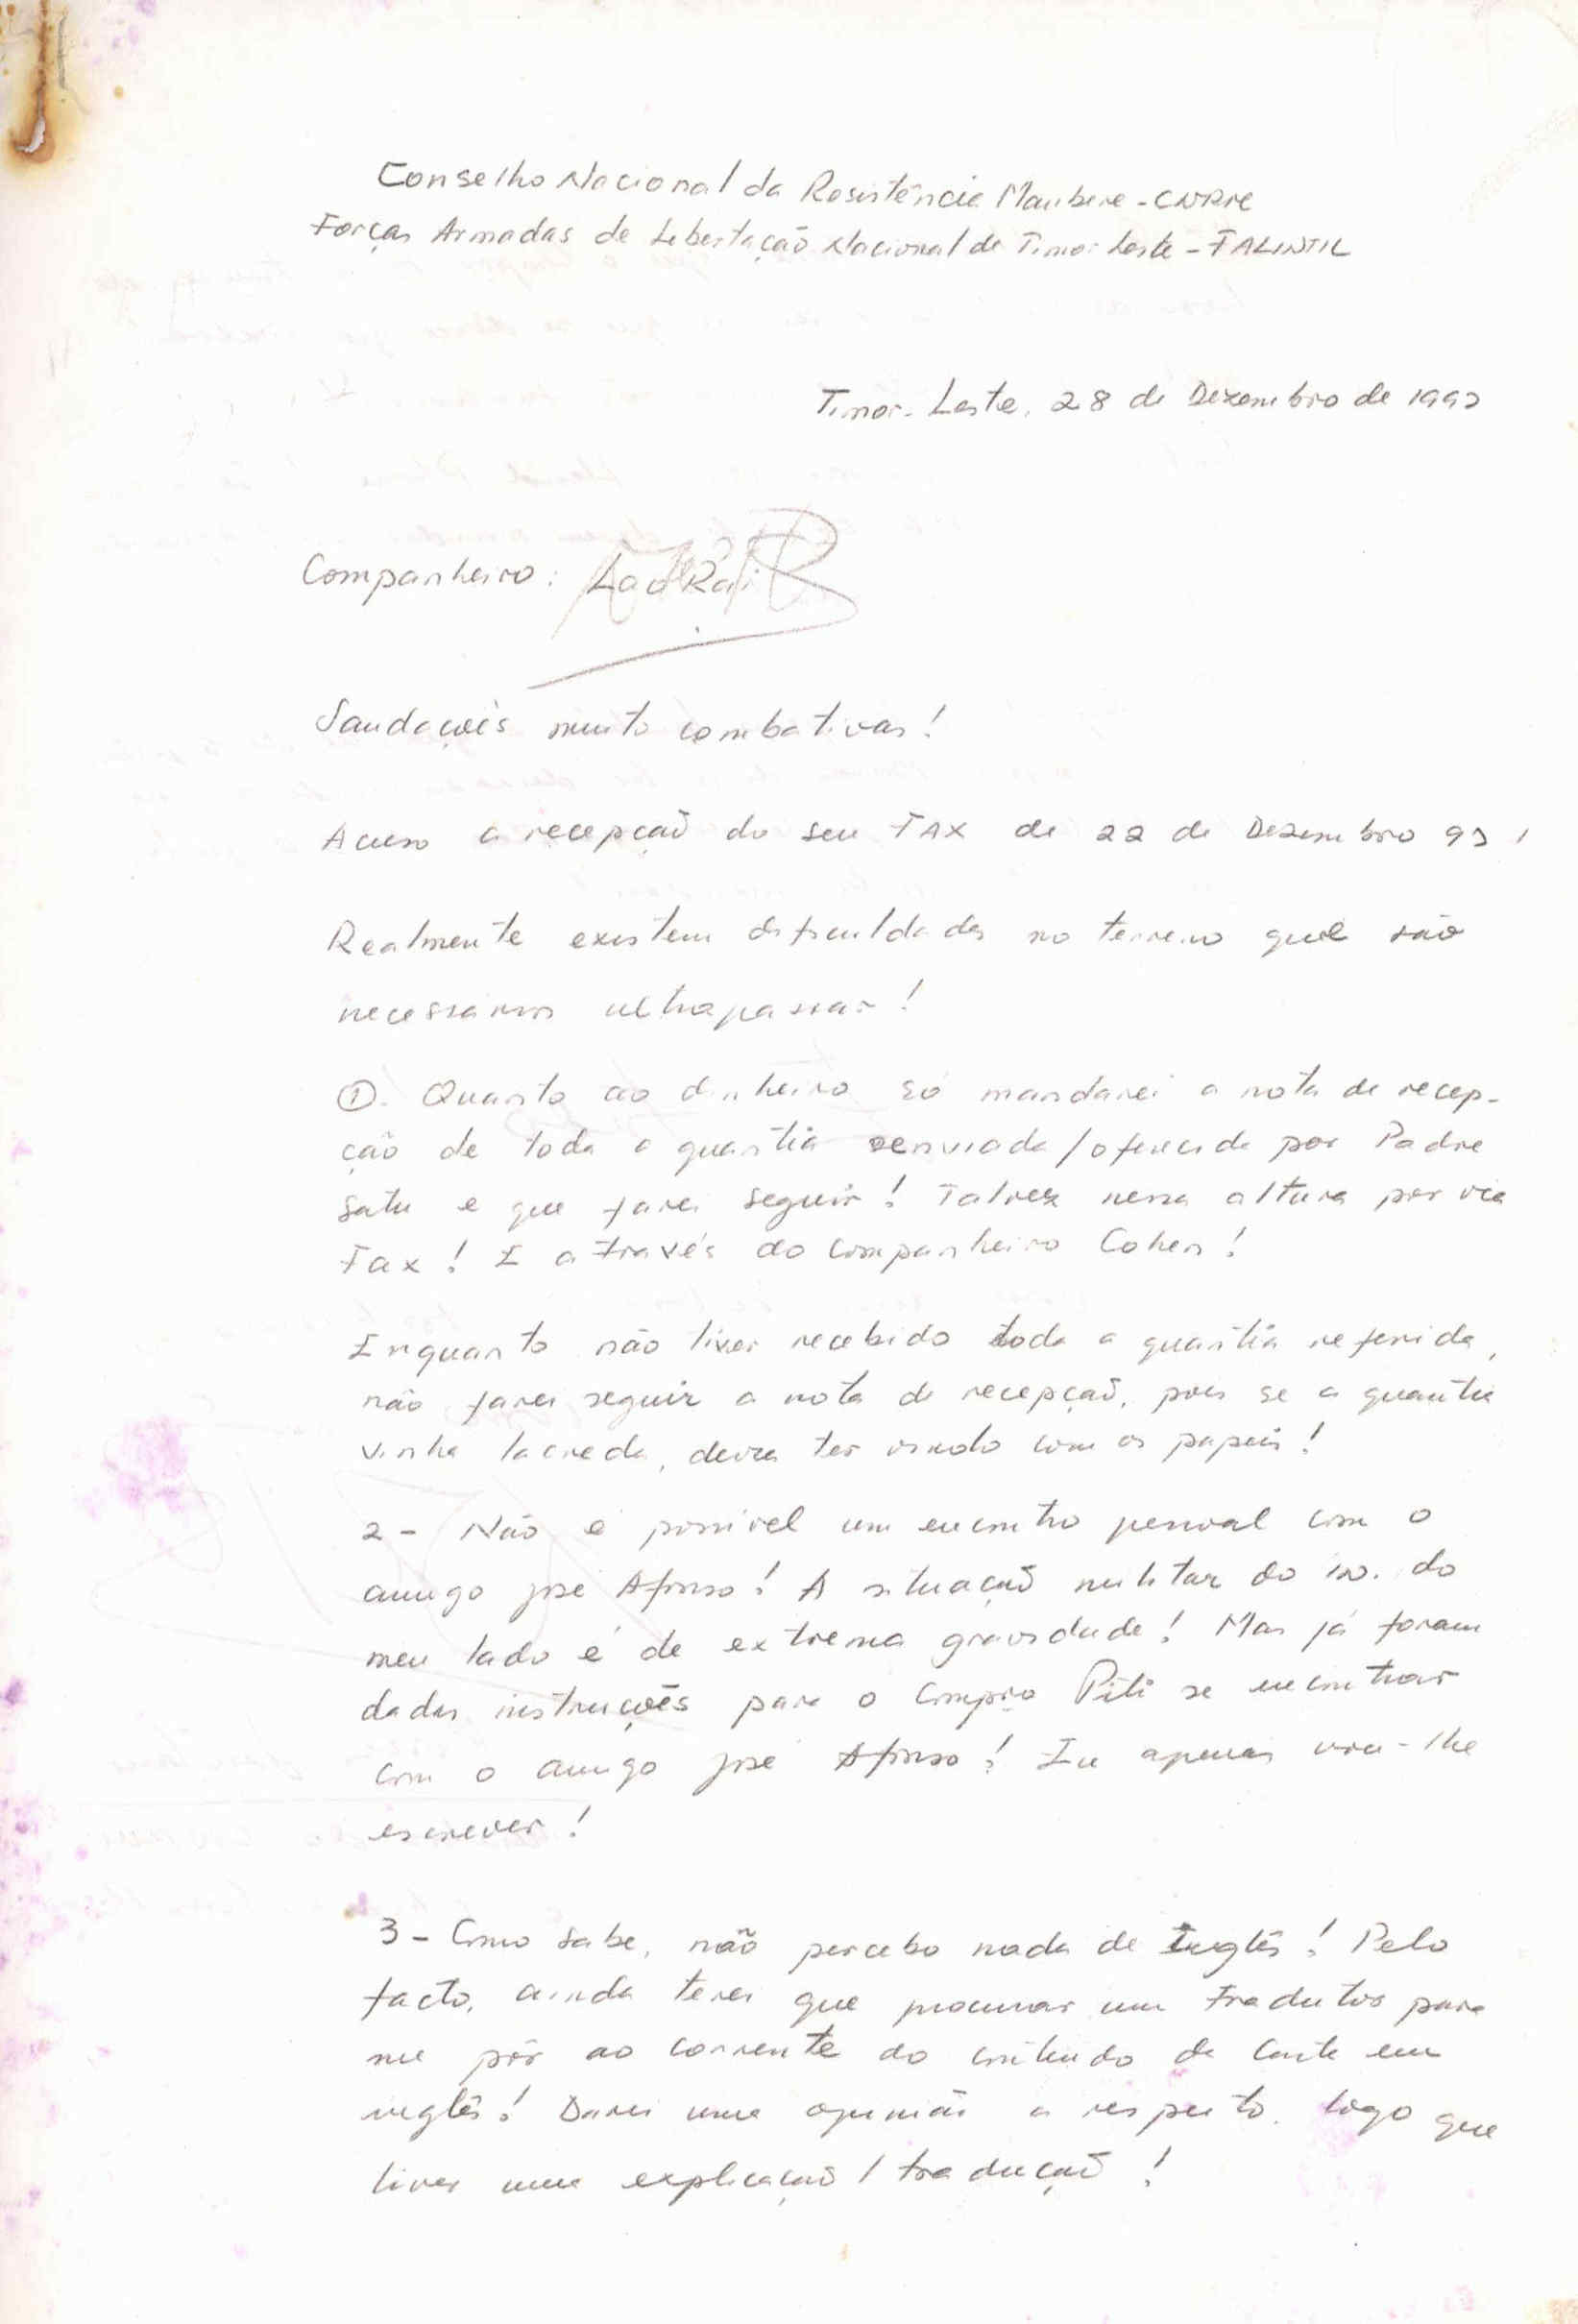 Conselho Nacional da Resistência Maubere - CNRM
Forças Armadas de Libertação Nacional de Timor Leste - FALINTIL
Timor-Leste, 28 de Dezembro de 1993
Companheiro: Lao Rai
Saudações muito combativas!
Acuso a recepção do seu FAX de 22 de Dezembro 93!
Realmente existem dificuldades no terreno que são
necessários ultrapassar!
①. Quanto ao dinheiro só mandarei a nota de recep-
ção de toda a quantia enviada/oferecida por Padre
Satu e que farei seguir! Talvez nessa altura por via
Fax! E através do companheiro Cohen!
Enquanto não tiver recebido toda a quantia referida,
não farei seguir a nota de recepção, pois se a quantia
vinha lacrada, devia ter vindo com os papeis!
2 - Não é possível um encontro pessoal com o
amigo José Afonso! A situação militar do in. do
meu lado é de extrema gravidade! Mas já foram
dadas instruções para o Compro Piti se encontrar
com o amigo José Afonso! Eu apenas vou-lhe
escrever!
3 - Como sabe, não percebo nada de Inglês! Pelo
facto, ainda terei que procurar um tradutor para
me pôr ao corrente do conteúdo da carta em
inglês! Darei uma opinião a respeito, logo que
tiver uma explicação/tradução!